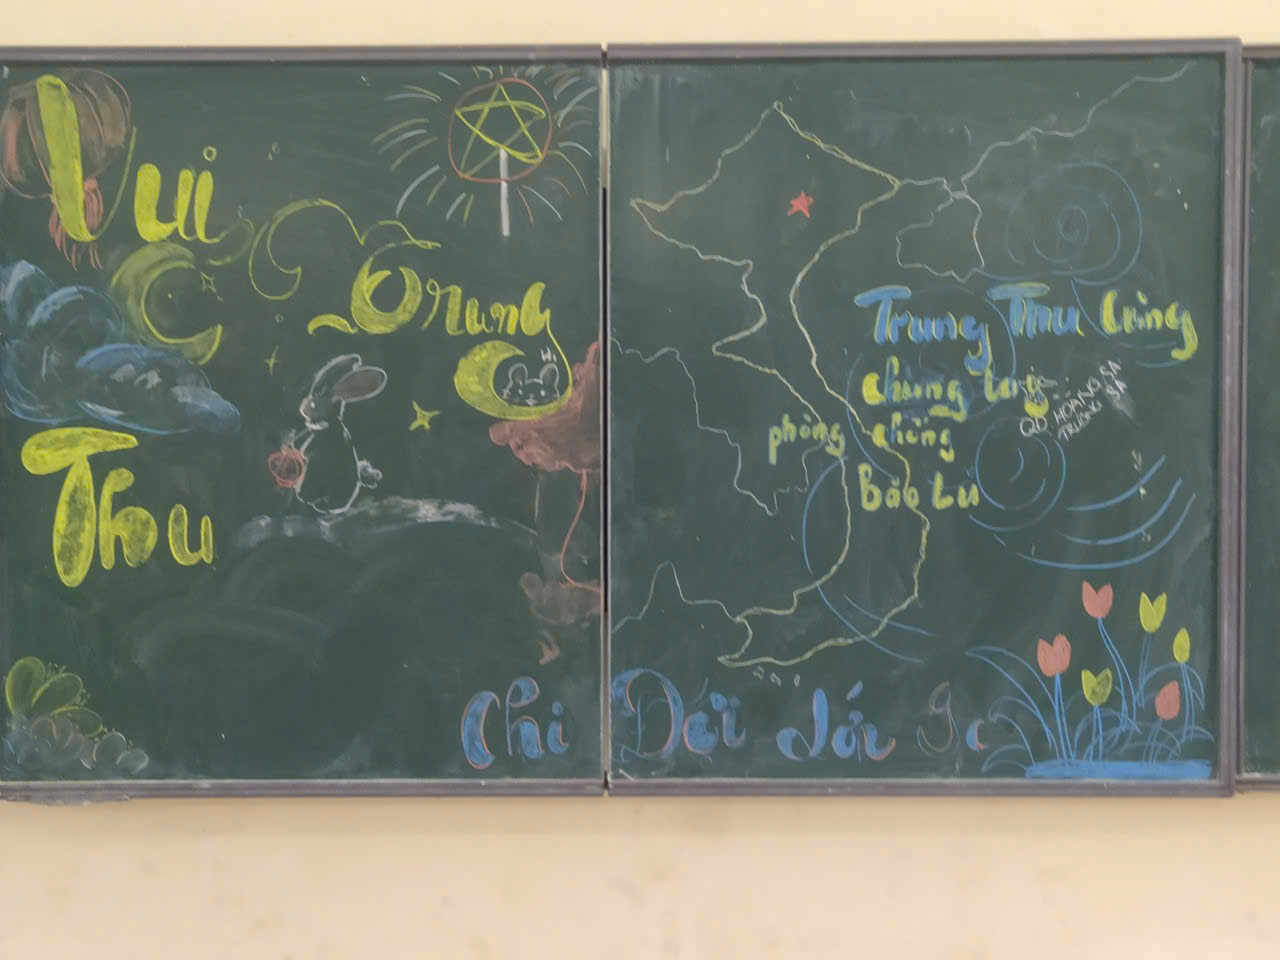 Vui
Trung
Hi
Thu
Trung Thu Cùng
chung tay
phòng chống
Bão Lũ
QĐ HOÀNG SA
TRƯỜNG SA
Chi Đội lớp 9c